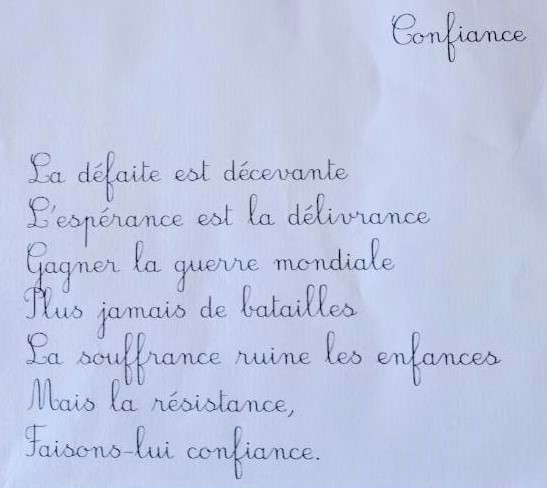 Confiance
La défaite est décevante
L'espérance est la délivrance
Gagner la guerre mondiale
Plus jamais de batailles
La souffrance ruine les enfances
Mais la résistance,
Faisons-lui confiance.